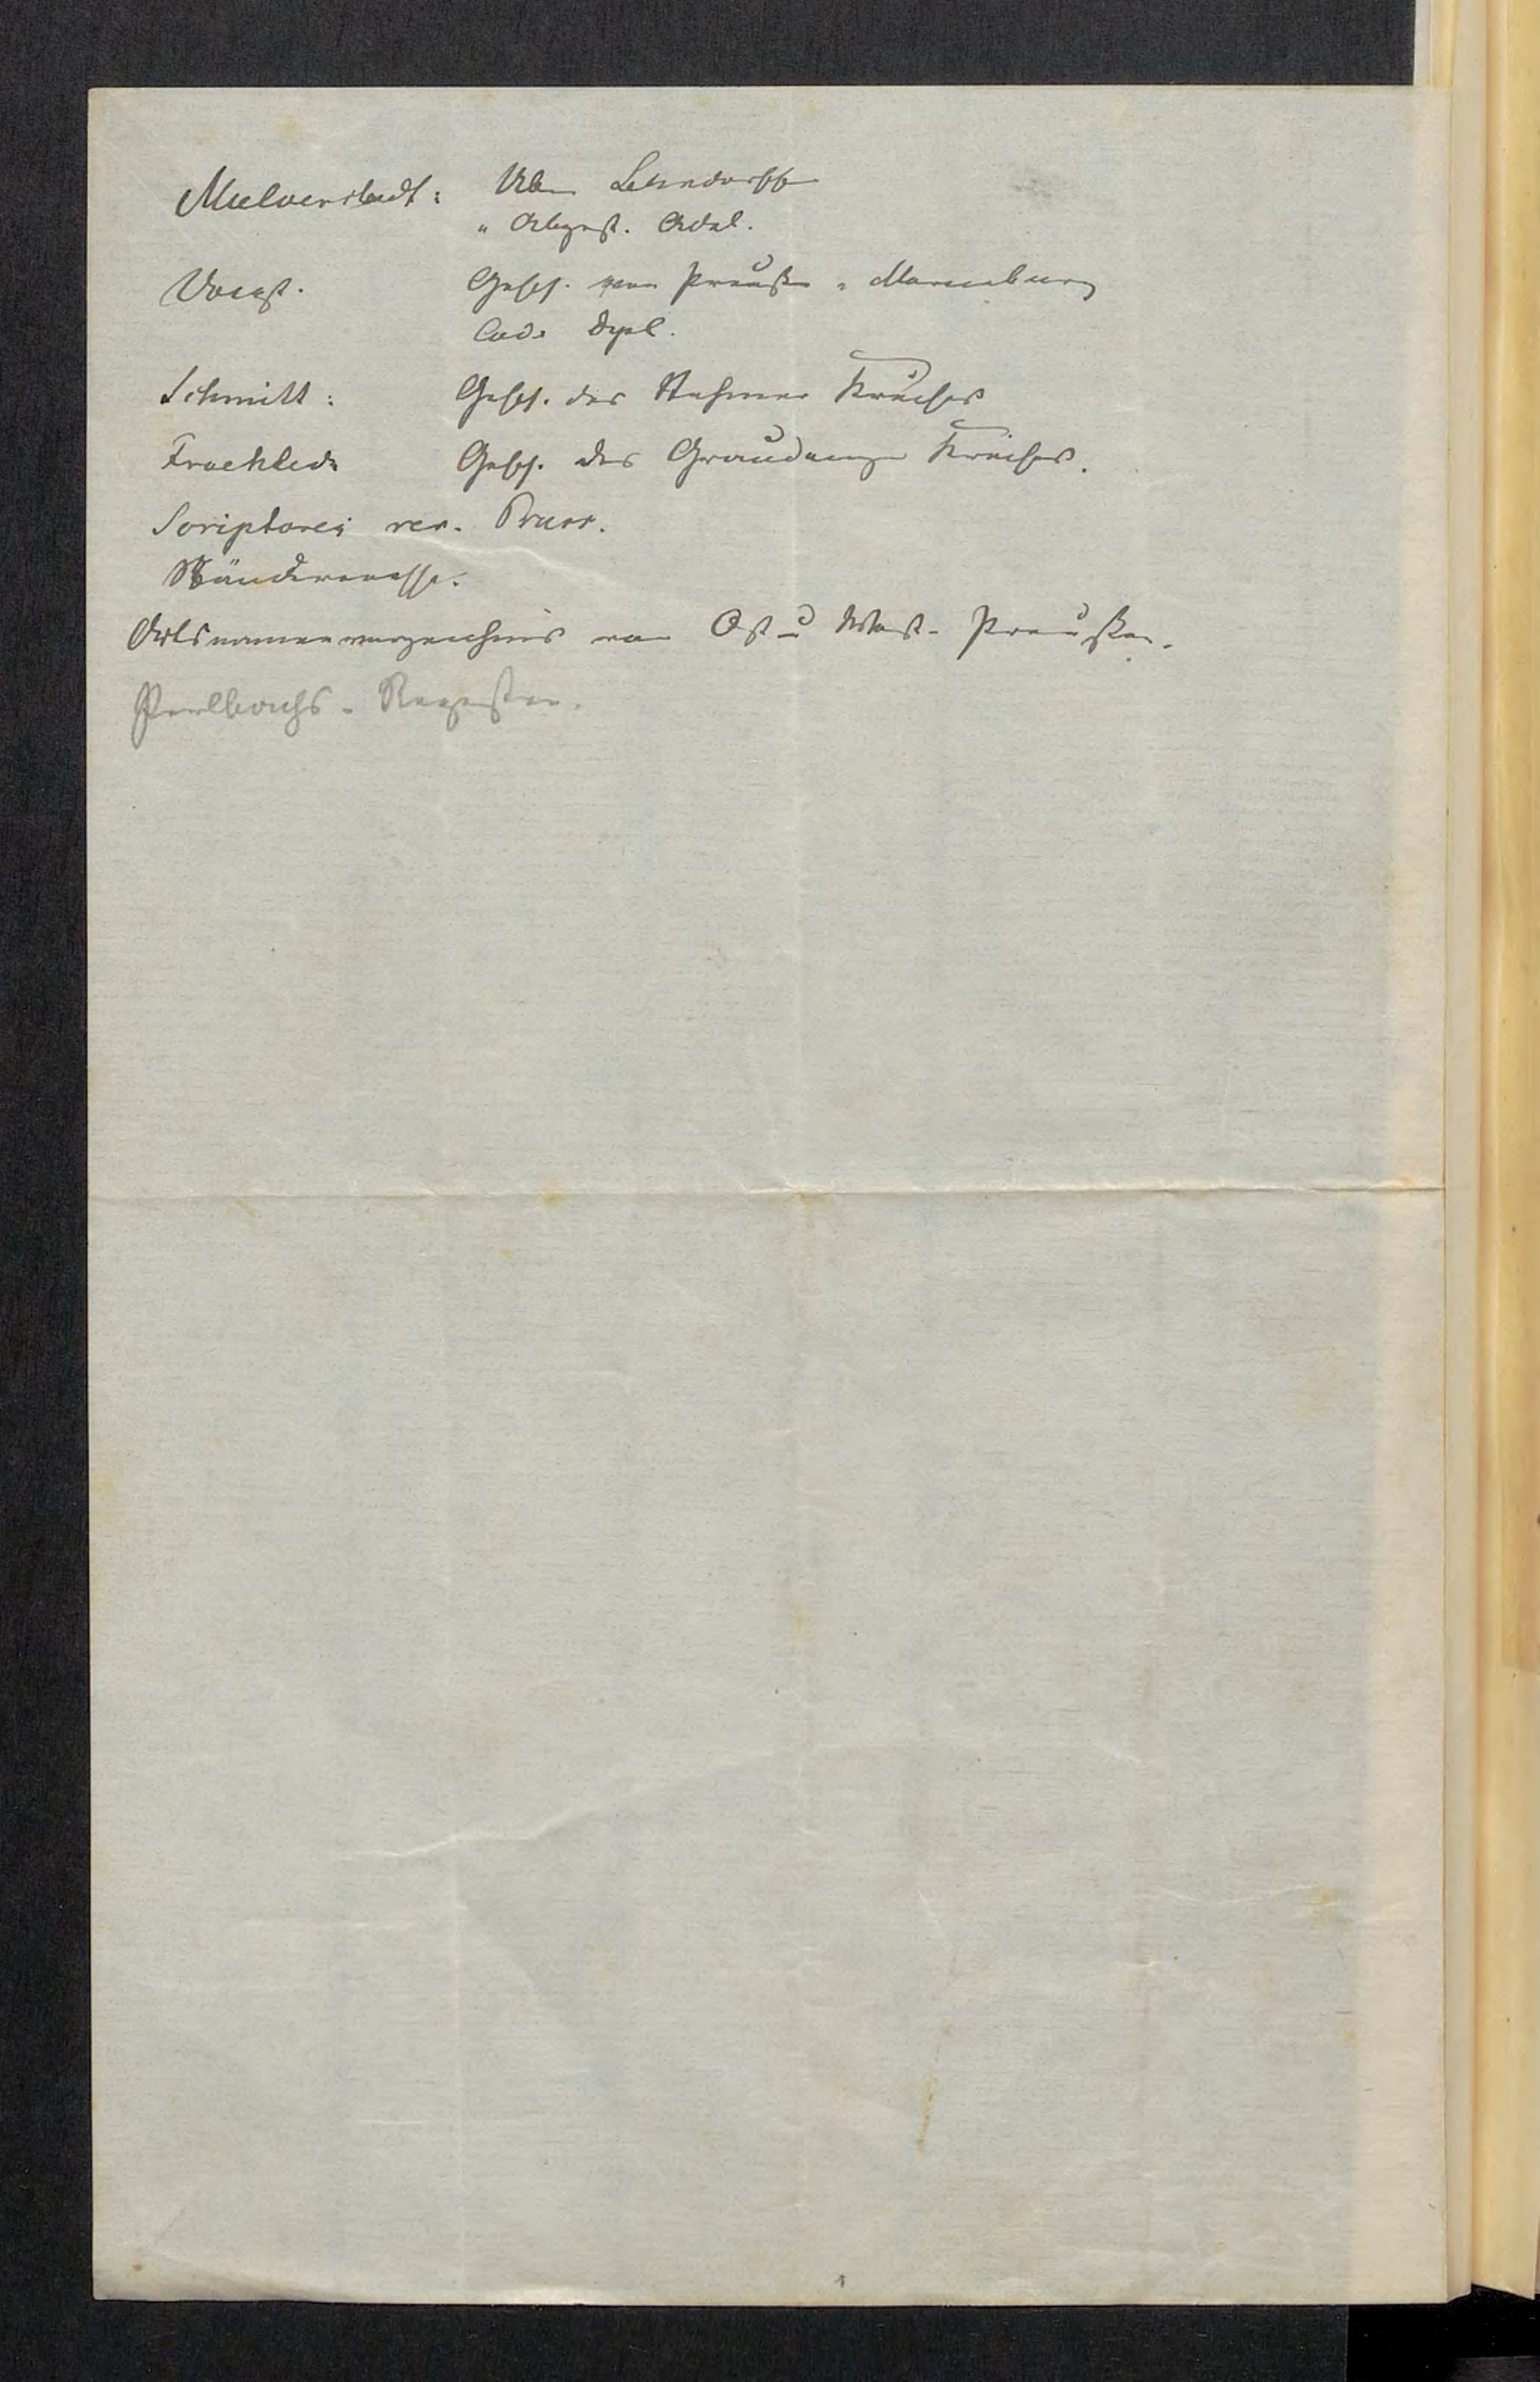 Mülverstedt: Über Lehndorff
" Abgest. Adel.
Voigt. Gesch. von Preußen u Marienburg
Cod. Dipl.
Schmitt: Gesch. des Stuhmer Kreises
Froehlich Gesch. des Graudenzer Kreises.
Scriptores rer. Pruss.
Ständeacten.
Ortsnamenverzeichnis von Ost u West-Preußen.
Perlbachs-Regesten.